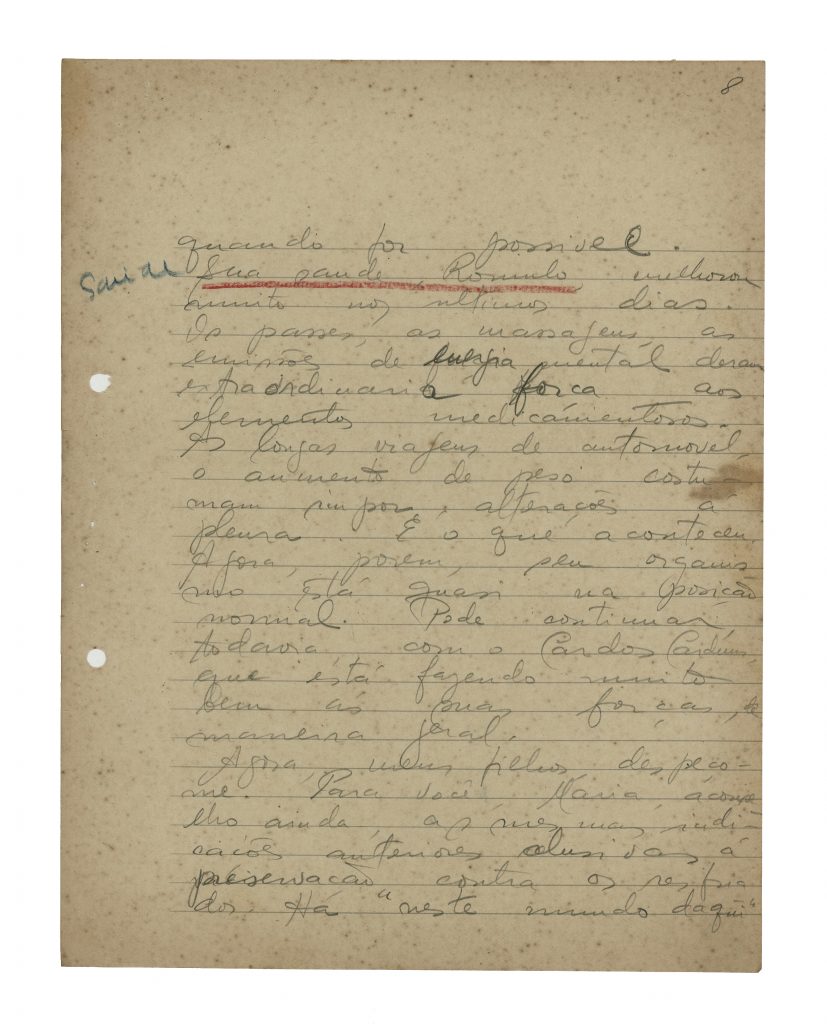 8
quando for possivel.
Saude
Sua saude, Romulo, melhorou
muito nos ultimos dias.
Os passes, as massagens, as
emissões de energia mental deram
extraordinaria força aos
elementos medicamentosos.
As longas viagens de automovel,
o aumento de peso costu-
mam impor alterações á
pleura. É o que aconteceu.
Agora, porem, seu organis
mo está quasi na posição
normal. Pode continuar
todavia com o Cardos
que está fazendo muito
bem ás suas forças, de
maneira geral.
Agora, meus filhos, despeço-
me. Para você, Maria, aconse
lho ainda as mesmas indi-
cações anteriores alusivas á
preservação contra os resfria
dos. Há "neste mundo daqui"